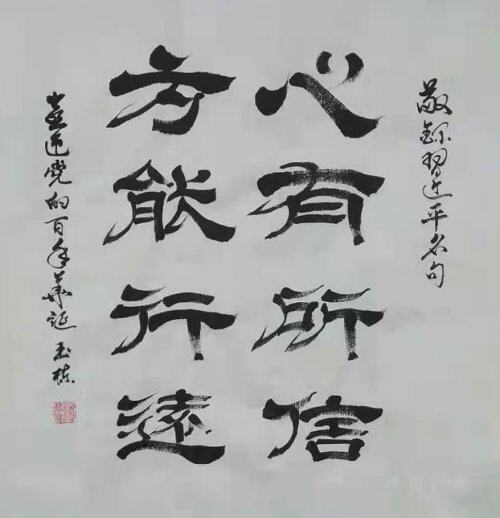 敬録習近平名句
心有所信
方能行遠
喜迎党的百年華誕 玉栋